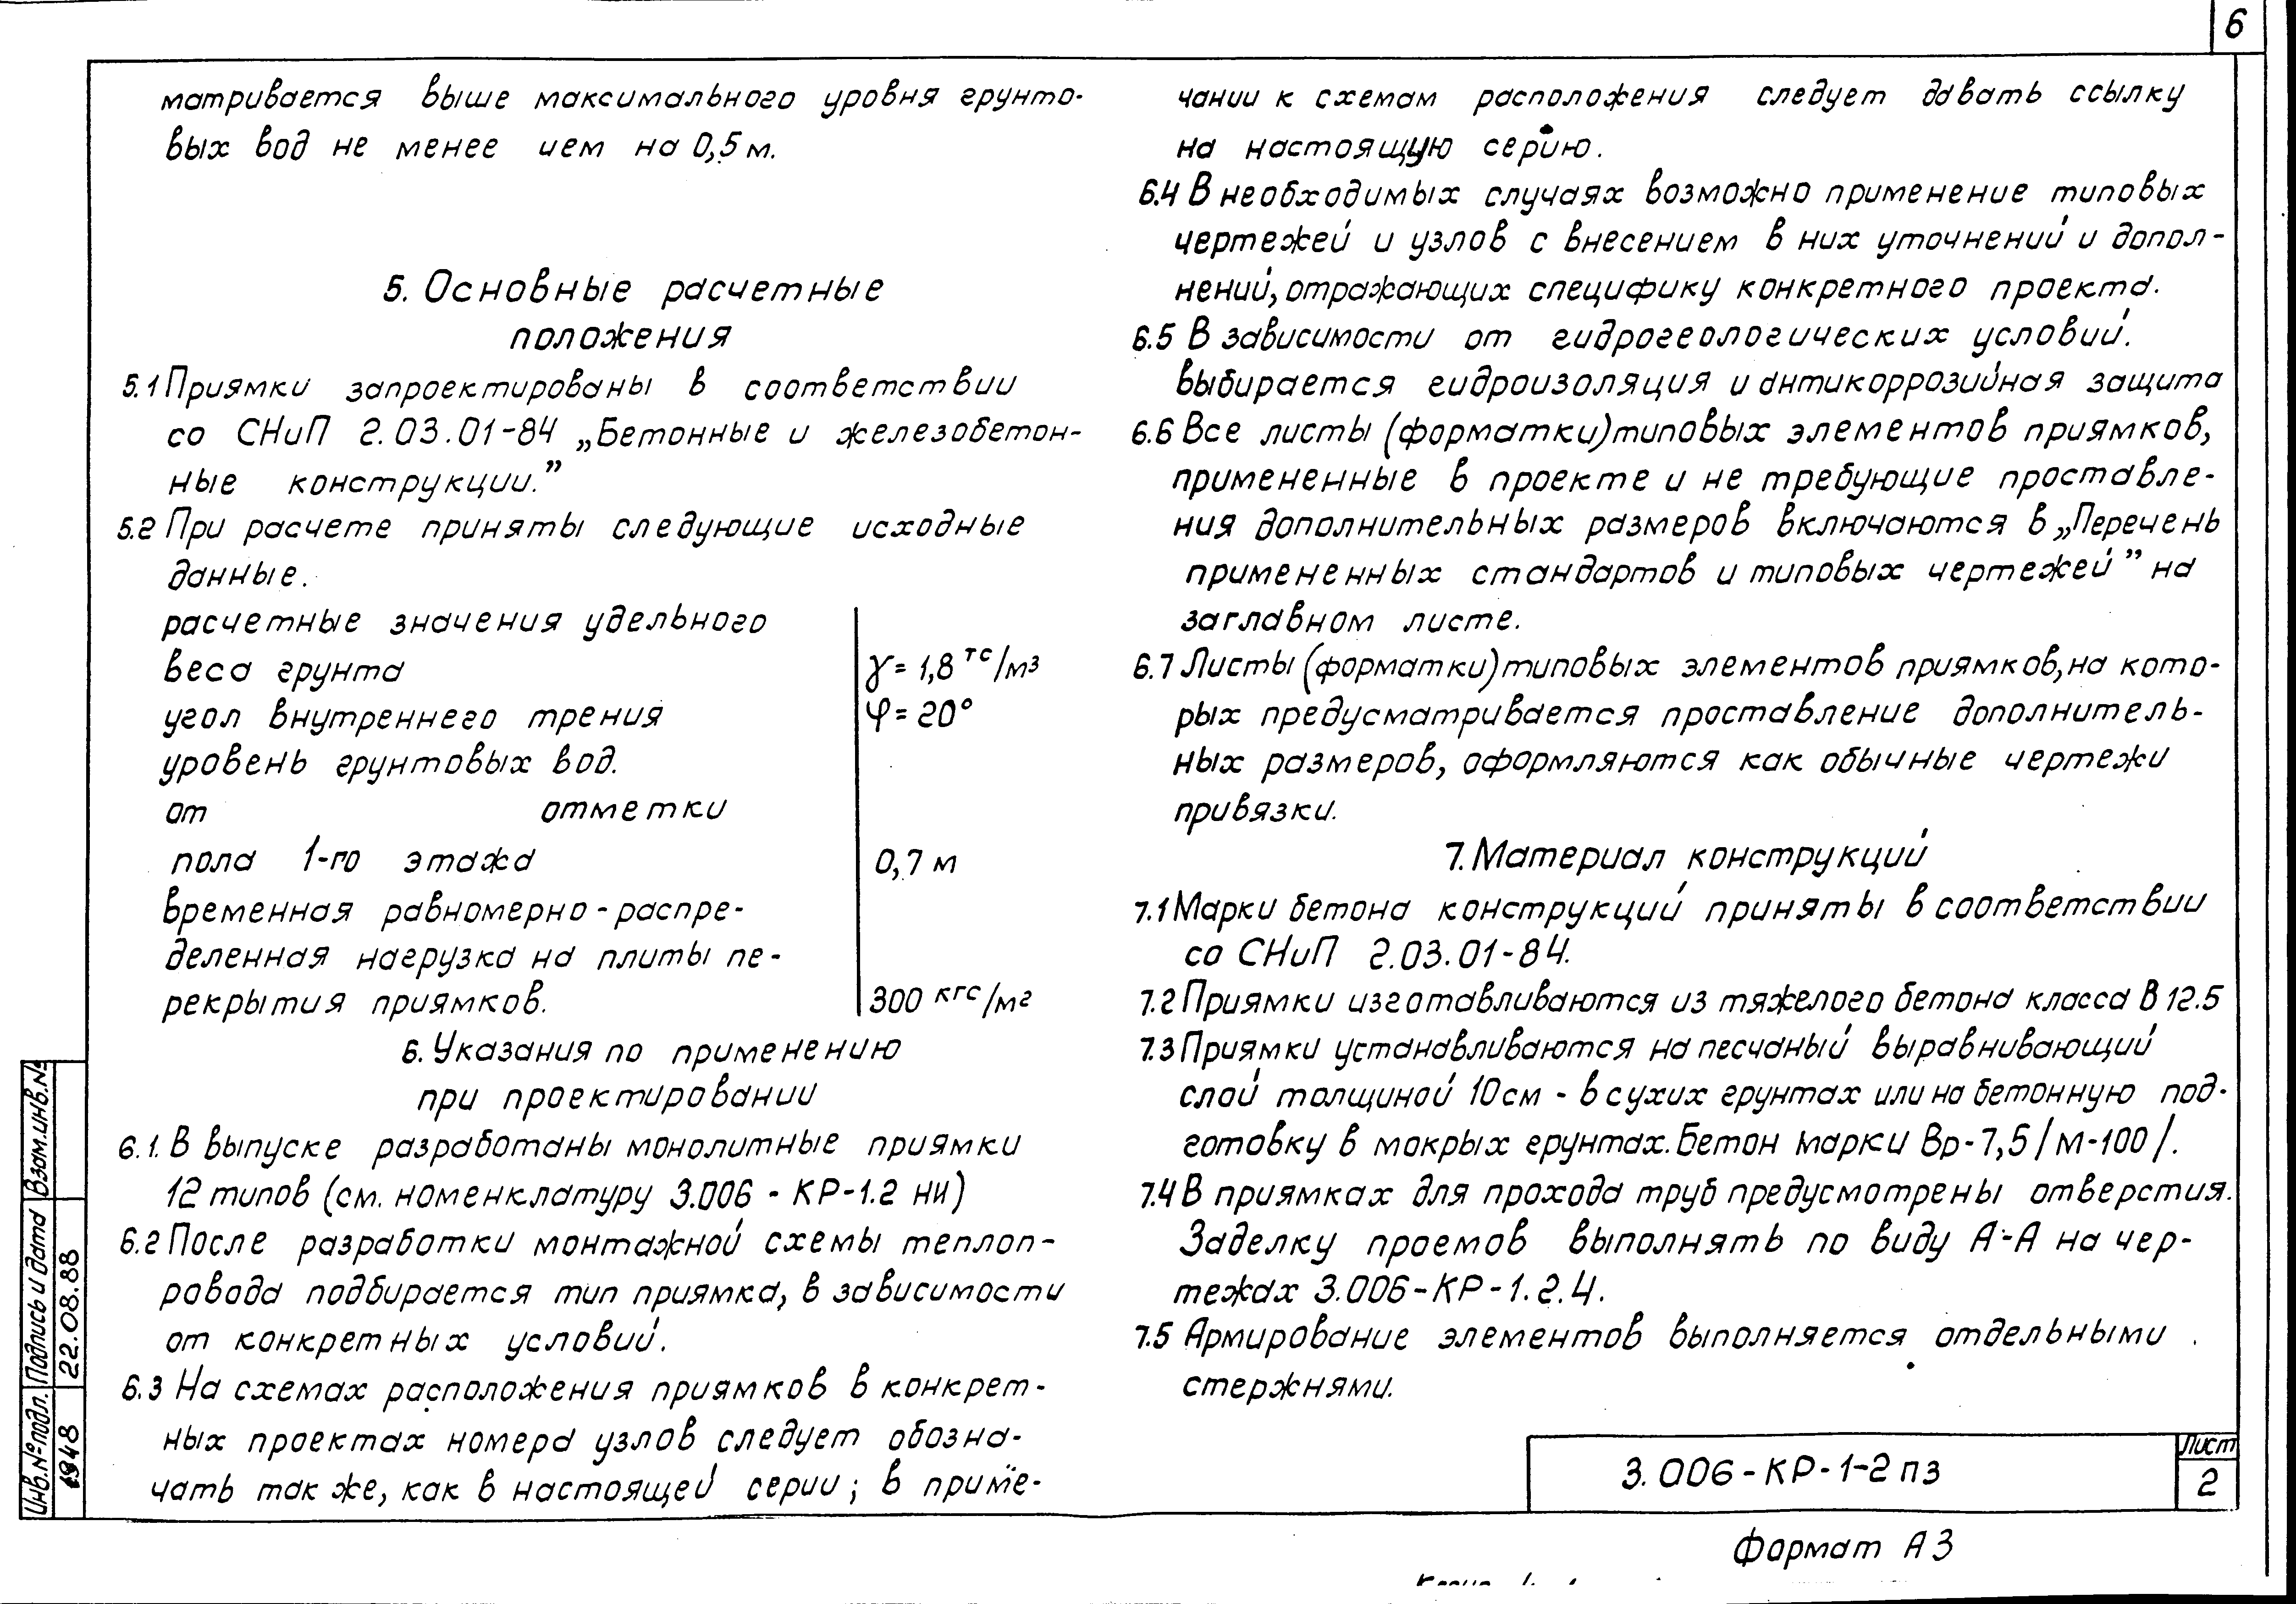 6
матривается выше максимального уровня грунто-
вых вод не менее ием на 0,5м.
5. Основные расчетные
положения
5.1 Приямки запроектированы в соответствии
со СНиП 2.03.01-84 „Бетонные и железобетон-
ные конструкции.”
5.2 При расчете приняты следующие исходные
данные.
расчетные значения удельного
веса грунта γ=1,8 тс/м3
угол внутреннего трения φ=20°
уровень грунтовых вод.
от отметки
пола 1-го этажа 0,7 м
временная равномерно-распре-
деленная нагрузка на плиты пе-
рекрытия приямков. 300 кгс/м2
6. Указания по применению
при проектировании
6.1. В выпуске разработаны монолитные приямки
12 типов (см. номенклатуру 3.006 - КР-1.2 НИ)
6.2 После разработки монтажной схемы теплоп-
ровода подбирается тип приямка, в зависимости
от конкретных условий.
6.3 На схемах расположения приямков в конкрет-
ных проектах номера узлов следует обозна-
чать так же, как в настоящей серии; в приме-
чании к схемам расположения следует давать ссылку
на настоящую серию.
6.4 В необходимых случаях возможно применение типовых
чертежей и узлов с внесением в них уточнений и допол-
нений, отражающих специфику конкретного проекта.
6.5 В зависимости от гидрогеологических условий.
выбирается гидроизоляция и антикоррозийная защита
6.6 Все листы (форматки) типовых элементов приямков,
примененные в проекте и не требующие проставле-
ния дополнительных размеров включаются в „Перечень
примененных стандартов и типовых чертежей” на
заглавном листе.
6.7 Листы (форматки) типовых элементов приямков, на кото-
рых предусматривается проставление дополнитель-
ных размеров, оформляются как обычные чертежи
привязки.
7. Материал конструкций
7.1 Марки бетона конструкций приняты в соответствии
со СНиП 2.03.01-84.
7.2 Приямки изготавливаются из тяжелого бетона класса В 12.5
7.3 Приямки устанавливаются на песчаный выравнивающий
слой толщиной 10см - в сухих грунтах или на бетонную под-
готовку в мокрых грунтах. Бетон марки Вр-7,5/М-100/.
7.4 В приямках для прохода труб предусмотрены отверстия.
Заделку проемов выполнять по виду А-А на чер-
тежах 3.006-КР-1.2.4.
7.5 Армирование элементов выполняется отдельными
стержнями.
Инв.№подл. Подпись и дата Взам.инв.№
1948 22.08.88
3.006-КР-1-2 пз
Лист
2
Формат А3